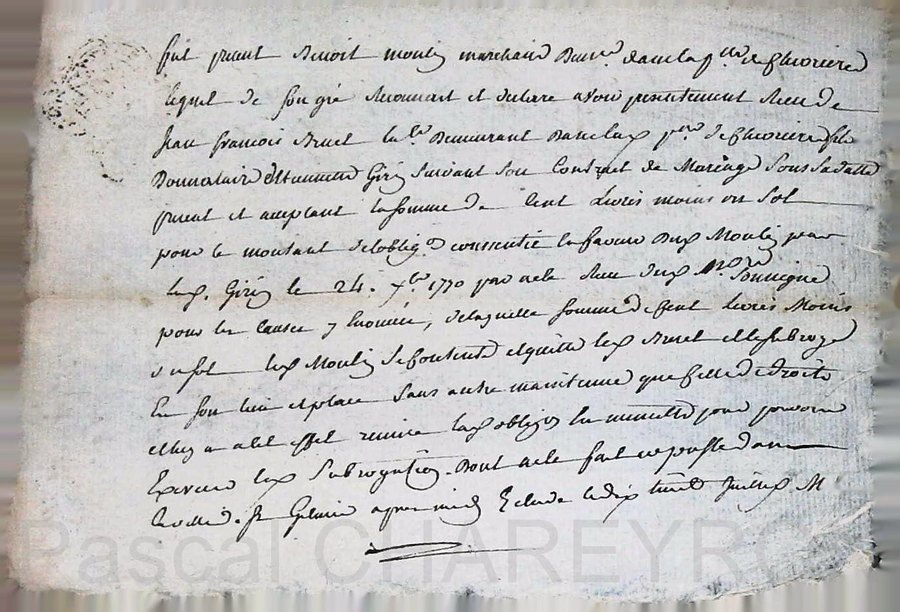 fut présent Benoit Moulin marchand dem.t dans la p.sse de
lequel de son gré reconnait et déclare avoir présentement receu de
Jean francois Bruel lab.r Demeurant Dans lad p.sse de fils
Donnataire d'Étiennette Giry suivant son Contract de Mariage sous sa datte
présent et aceptant la somme de Cent Livres moins un sol
pour le montant de l'oblig.on consentie en faveur dud Moulin par
led. Giry le 24. 7bre 1770 par acte receu dud M.e
pour les causes y énoncées, de laquelle somme de Cent Livres Moins
un sol led Moulin se contente et quitte led Bruel et le subroge
en son lieu et place sans autre maintenue que celle de droit
et luy a a cet effet remise lad oblig.on en minutte pour pouvoir
Exercer lad Subrogation. Dont acte fait et passé dans
apres midy Etude le dix Juillet M
Pascal CHAREYRO